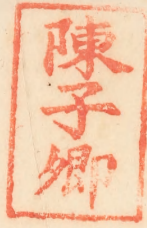 陳子卿